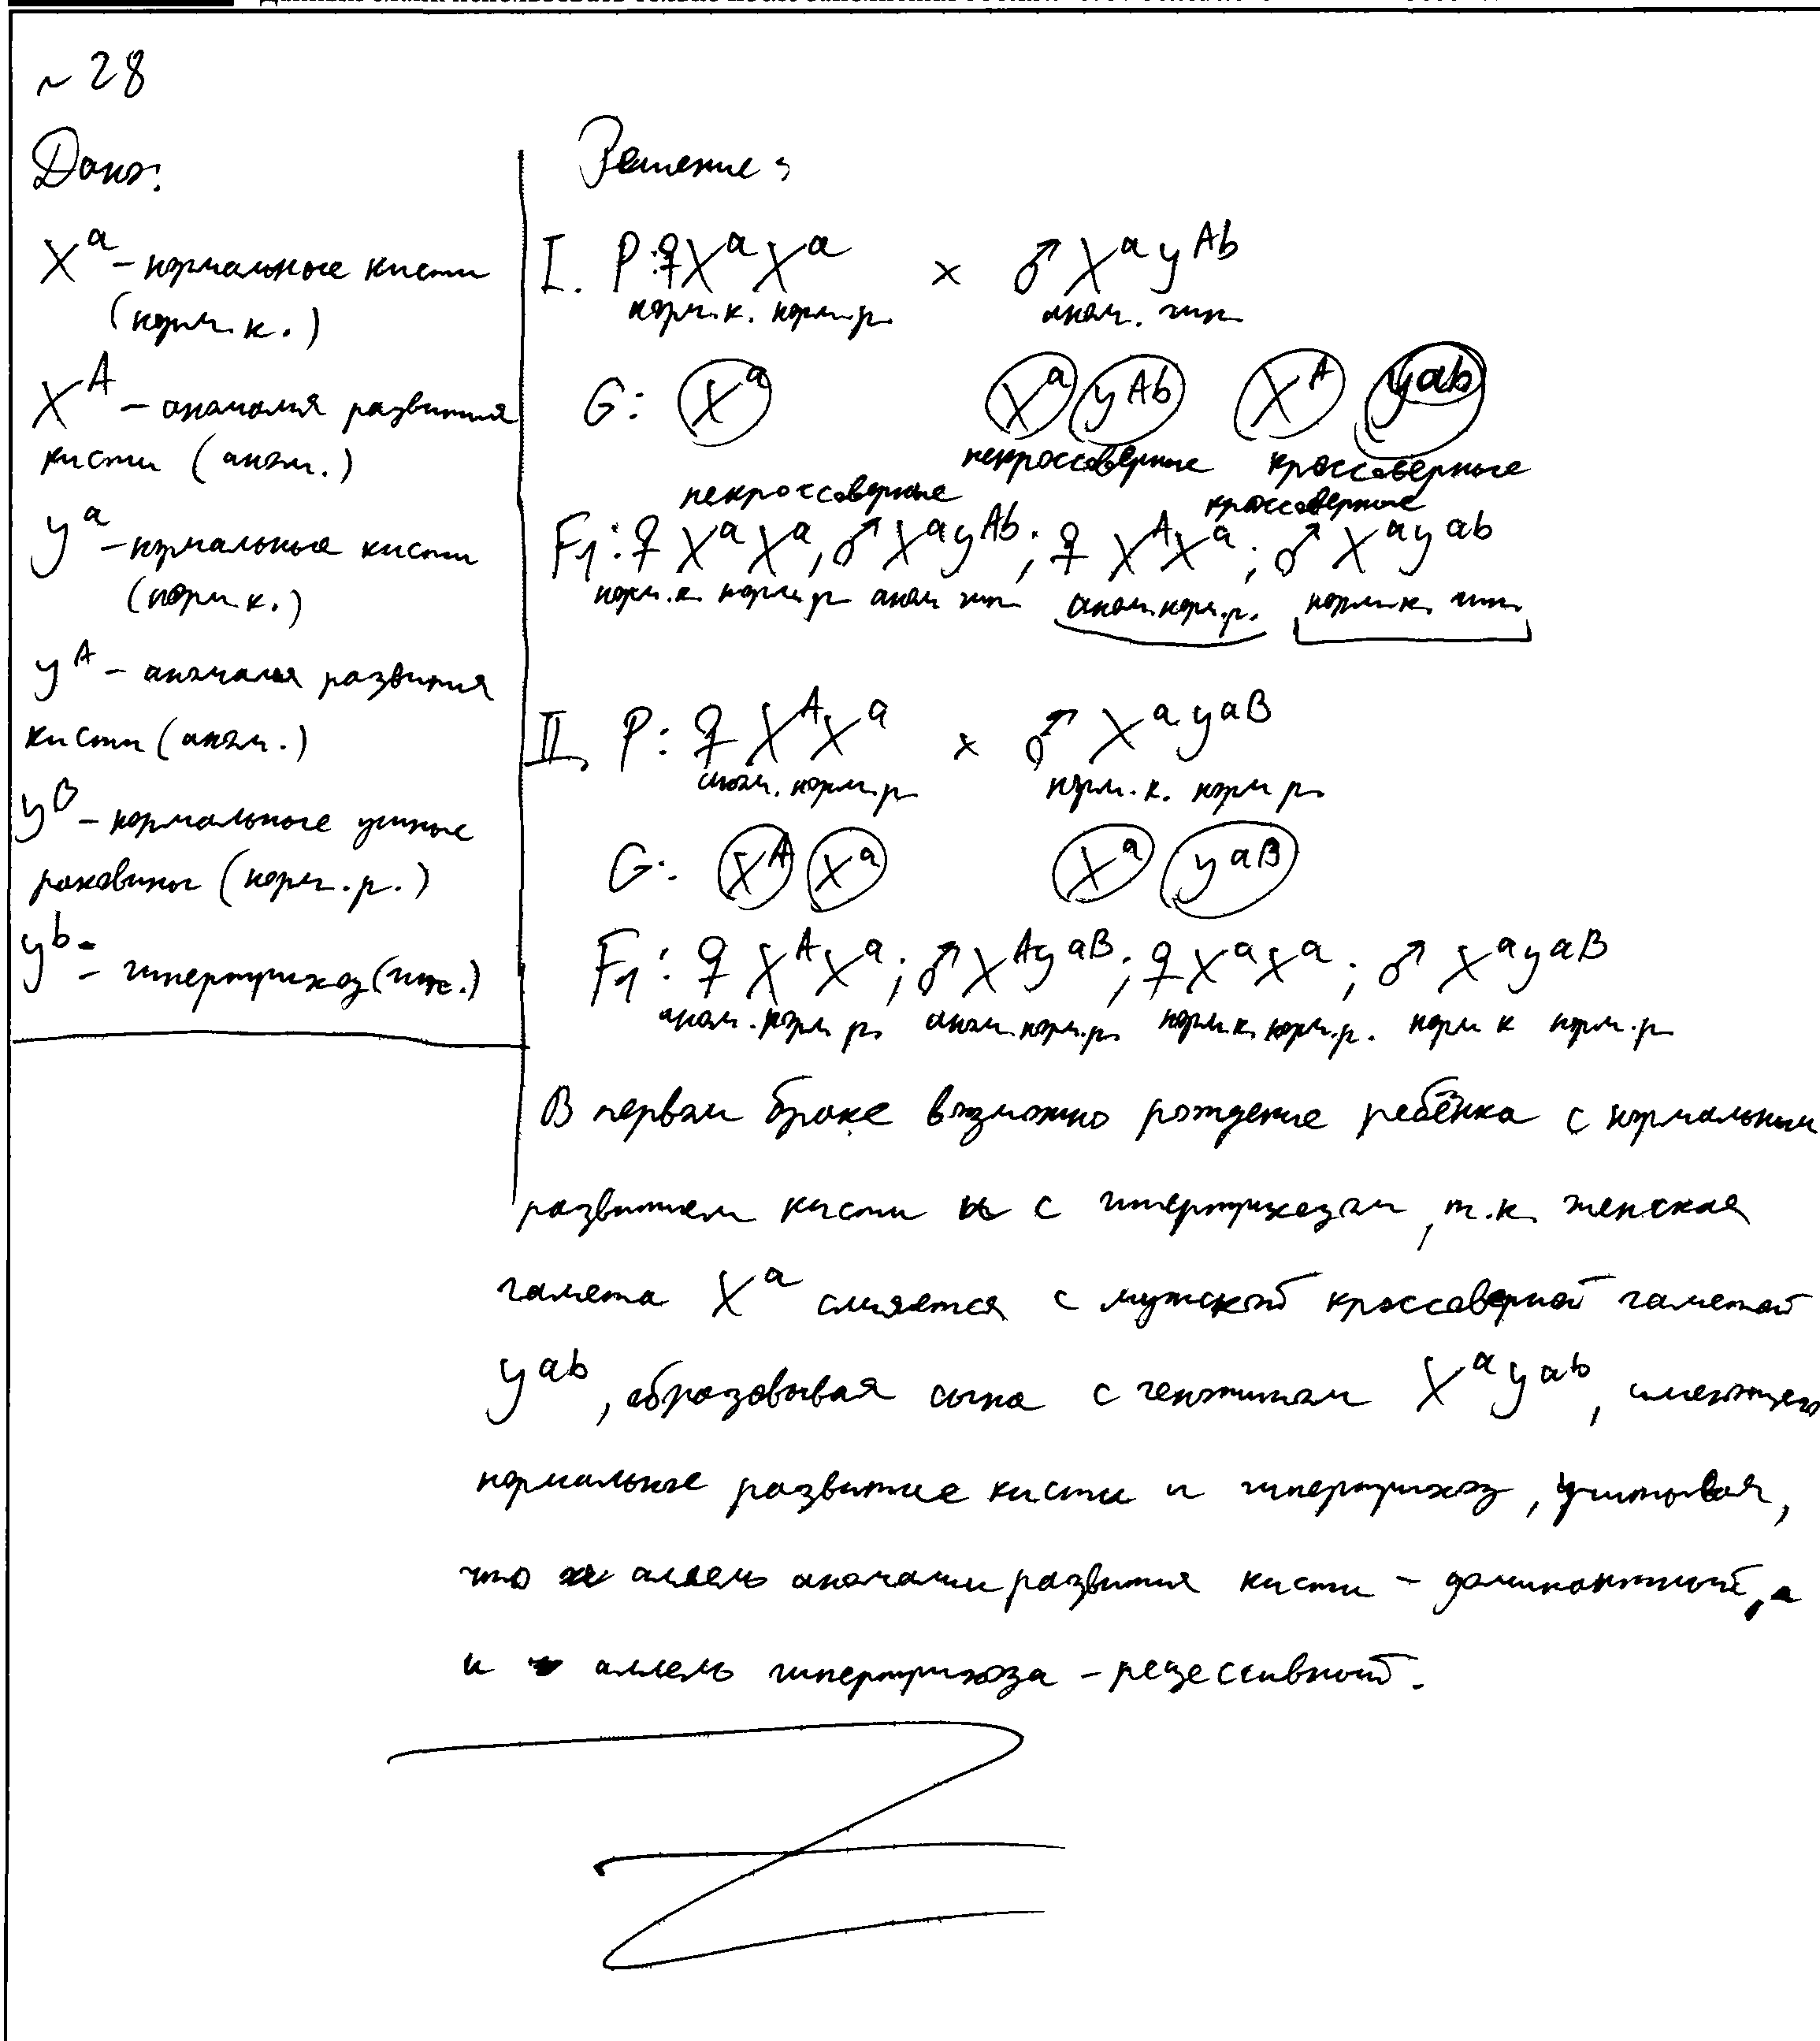 ~ 28
Дано:
X^a – нормальные кисти
(норм.к.)
X^A – аномалия развития
кисти (аном.)
y^a – нормальные кисти
(норм.к.)
y^A – аномалия развития
кисти (аном.)
y^B – нормальные ушные
раковины (норм.р.)
y^b – гипертрихоз (гип.)
Решение:
I. P: ♀ X^a X^a × ♂ X^a y^Ab
норм.к. норм.р. аном. гип.
G: X^a X^a y^Ab X^A y^ab
некроссоверные кроссоверные
некроссоверные кроссоверные
F1: ♀ X^a X^a, ♂ X^a y^Ab; ♀ X^A X^a; ♂ X^a y^ab
норм.к. норм.р. аном. гип. аном. норм.р. норм.к. гип.
II. P: ♀ X^A X^a × ♂ X^a y^aB
аном. норм.р. норм.к. норм р.
G: X^A X^a X^a y^aB
F1: ♀ X^A X^a; ♂ X^A y^aB; ♀ X^a X^a; ♂ X^a y^aB
аном. норм р. аном. норм.р. норм.к. норм.р. норм к норм.р.
В первом браке возможно рождение ребёнка с нормальным
развитием кисти и с гипертрихозом, т.к. женская
гамета X^a сливается с мужской кроссоверной гаметой
y^ab, образовывая сына с генотипом X^a y^ab, имеющего
нормальное развитие кисти и гипертрихоз, учитывая,
что аллель аномалии развития кисти – доминантный, а
и аллель гипертрихоза – рецессивный.